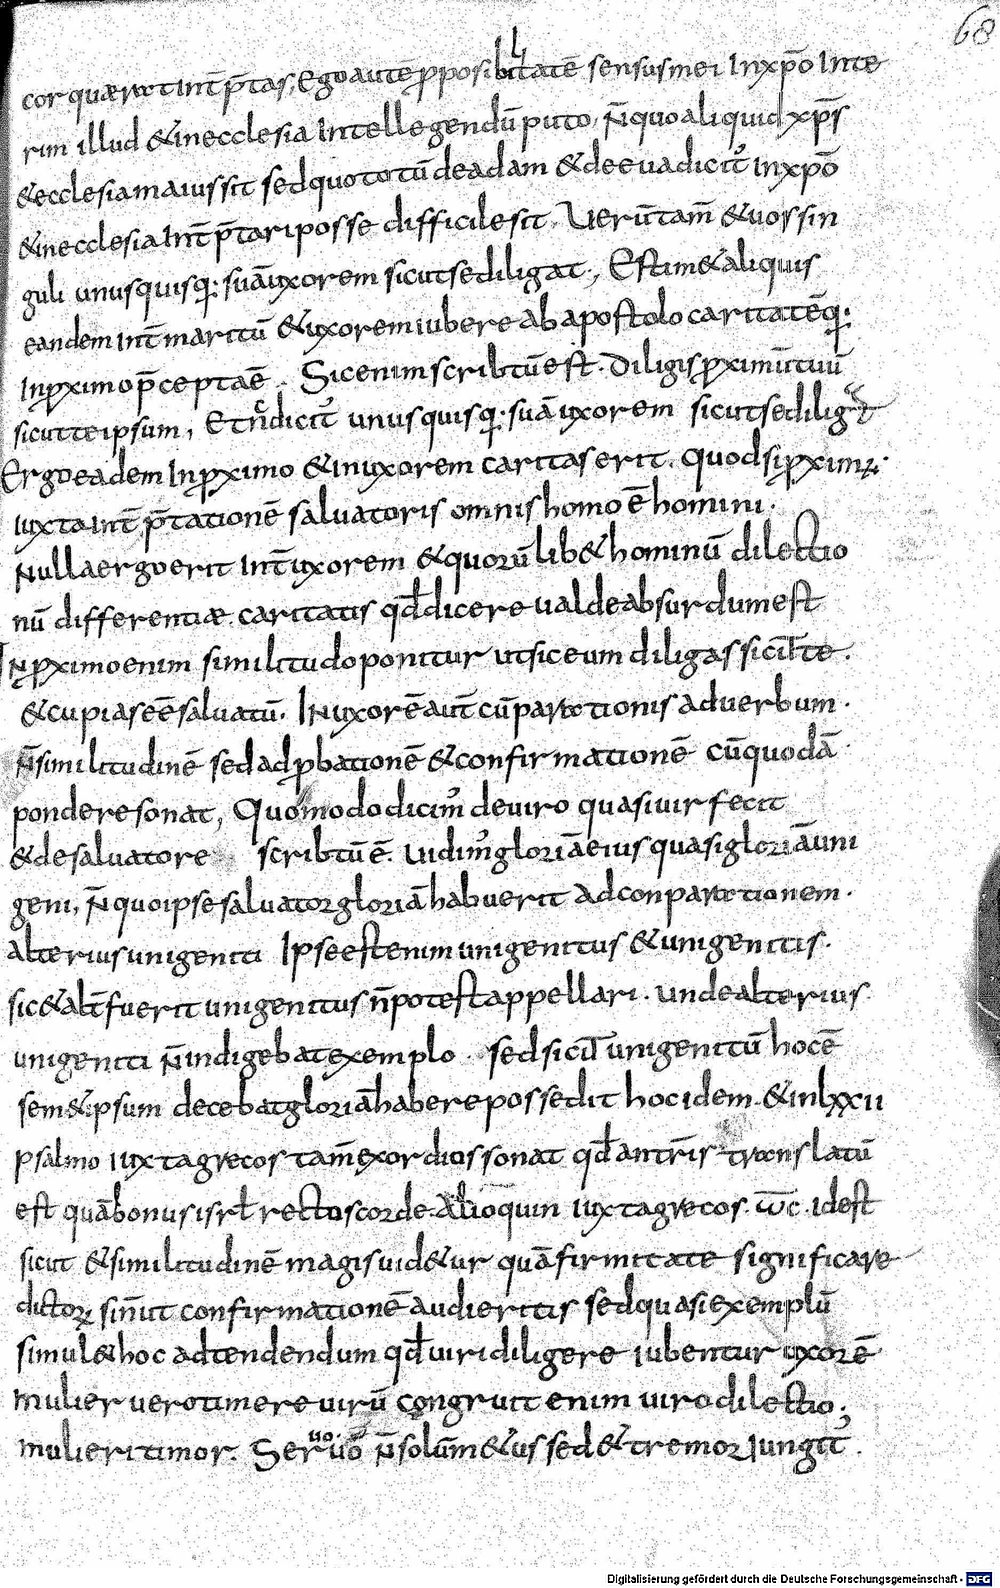 68
cor quaerat int̄p̄tas, Ego aut̄ē p̱posibilitatē sensus mei Inxp̄o Inte
rim illud & in ecclesia Intellegendū puto, N̄ quo aliquid xp̄s
& ecclesia maius sit sed quo totū de adam & de eva dicit᷒ inxp̄o
& in ecclesia Int̄p̄tari posse difficile sit. Verūtam̄ & vos sin
guli unusquisq: suā uxorem sicut se diligat., Estim& aliquis
eandem int̄ maritū & uxorem iubere ab apostolo caritatēq:
In p̱ximo p̄cepta ē. Sic enim scribtū est. Diligis p̱ximū tuū
sicut te ipsum, Et n̄ dicit᷒ unusquisq: suā uxorem sicut se diligat
Ergo eadem In p̱ximo & in uxorem caritas erit. quod si p̱ximꝰ:
iuxta int̄p̄tationē salvatoris omnis homo ē homini.
Nulla ergo erit Int̄ uxorem & quorūlib& hominū dilectio
nū differentiae caritatis qd̄ dicere valde absurdum est
IN p̱ximo enim similitudo ponitur ut sic eum diligas sicut te.
& cupias eē salvatū. IN uxorē aut̄ cū paratione is adverbum.
N̄ similitudinē sed ad p̱bationē & confirmationē cū quodā
pondere sonat, Quomodo dicim᷒ de viro quasi vir fecit
& de salvatore scribtū ē. vidim᷒ gloriā eius quasi gloriā uni
geni, N̄ quo ipse salvator gloriā habuerit ad conparationem.
alterius unigeniti Ipse est enim unigenitus & unigenitis.
sic & alt̄ fuerit unigenitus n̄ potest appellari. unde alterius
unigeniti n̄ indigebat exemplo. sed sicut unigenitū hoc ē
sem&ipsum decebat gloriā habere possedit hoc idem & in lxxii
psalmo iuxta grecos tam̄ exordius sonat qd̄ a nr̄is translatū
est quā bonus isrl̄ rectos corde Alioquin iuxta grecos. ωc. id est
sicut & similitudinē magis vid&ur quā firmitate significare
dictorꝝ si n̄ ut confirmationē audieritis sed quasi exemplū
simul & hoc adtendendum qd̄ viri diligere iubentur uxorē
mulier vero timere virū congruit enim viro dilectio;
mulieri timor. Servo uo. n̄ solū m&us sed & tremor iungit᷒.
Digitalisierung gefördert durch die Deutsche Forschungsgemeinschaft - DFG